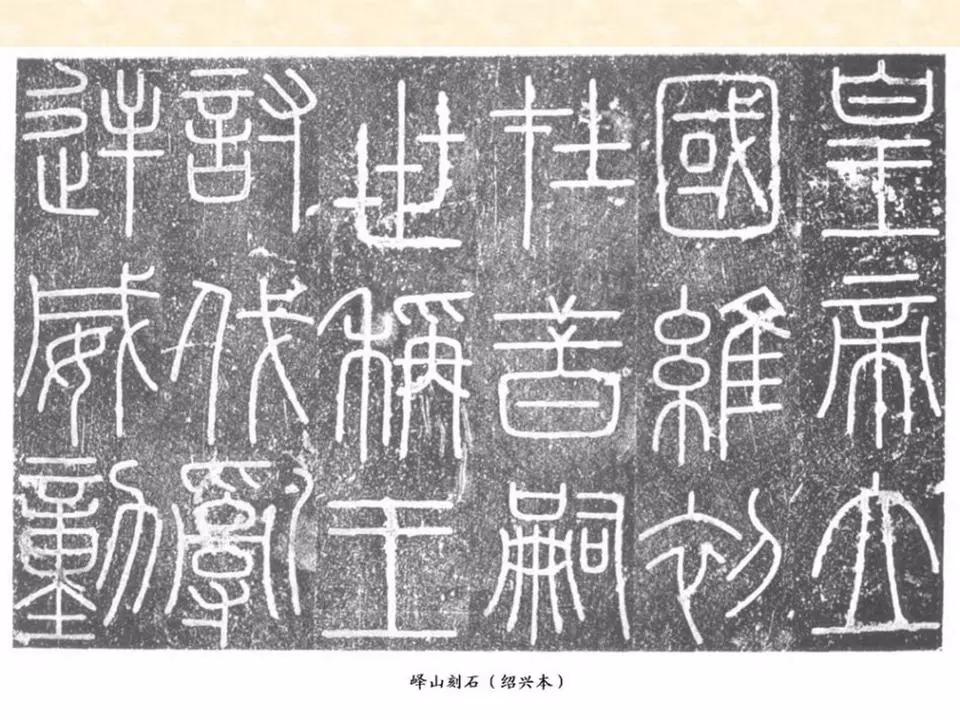 皇帝立
國維初
在昔嗣
世稱王
討伐亂
逆威動
峄山刻石（绍兴本）